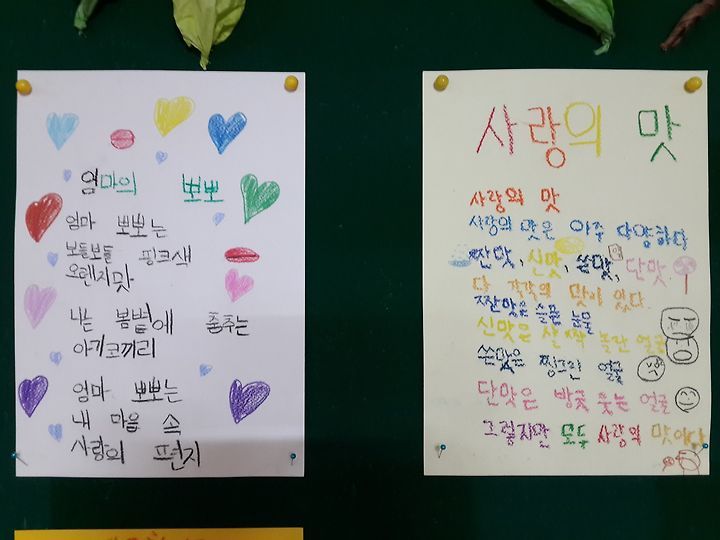 엄마의 뽀뽀
엄마 뽀뽀는
보들보들 핑크색
오렌지맛
나는 봄볕에 춤추는
아기코끼리
엄마 뽀뽀는
내 마음 속
사랑의 편지
사랑의 맛
사랑의 맛
사랑의 맛은 아주 다양하다
짠맛, 신맛, 쓴맛, 단맛
다 각각의 맛이 있다.
짠맛은 슬픈 눈물
신맛은 살짝 놀란 얼굴
쓴맛은 찡그린 얼굴
단맛은 방긋 웃는 얼굴
그렇지만 모두 사랑의 맛이다